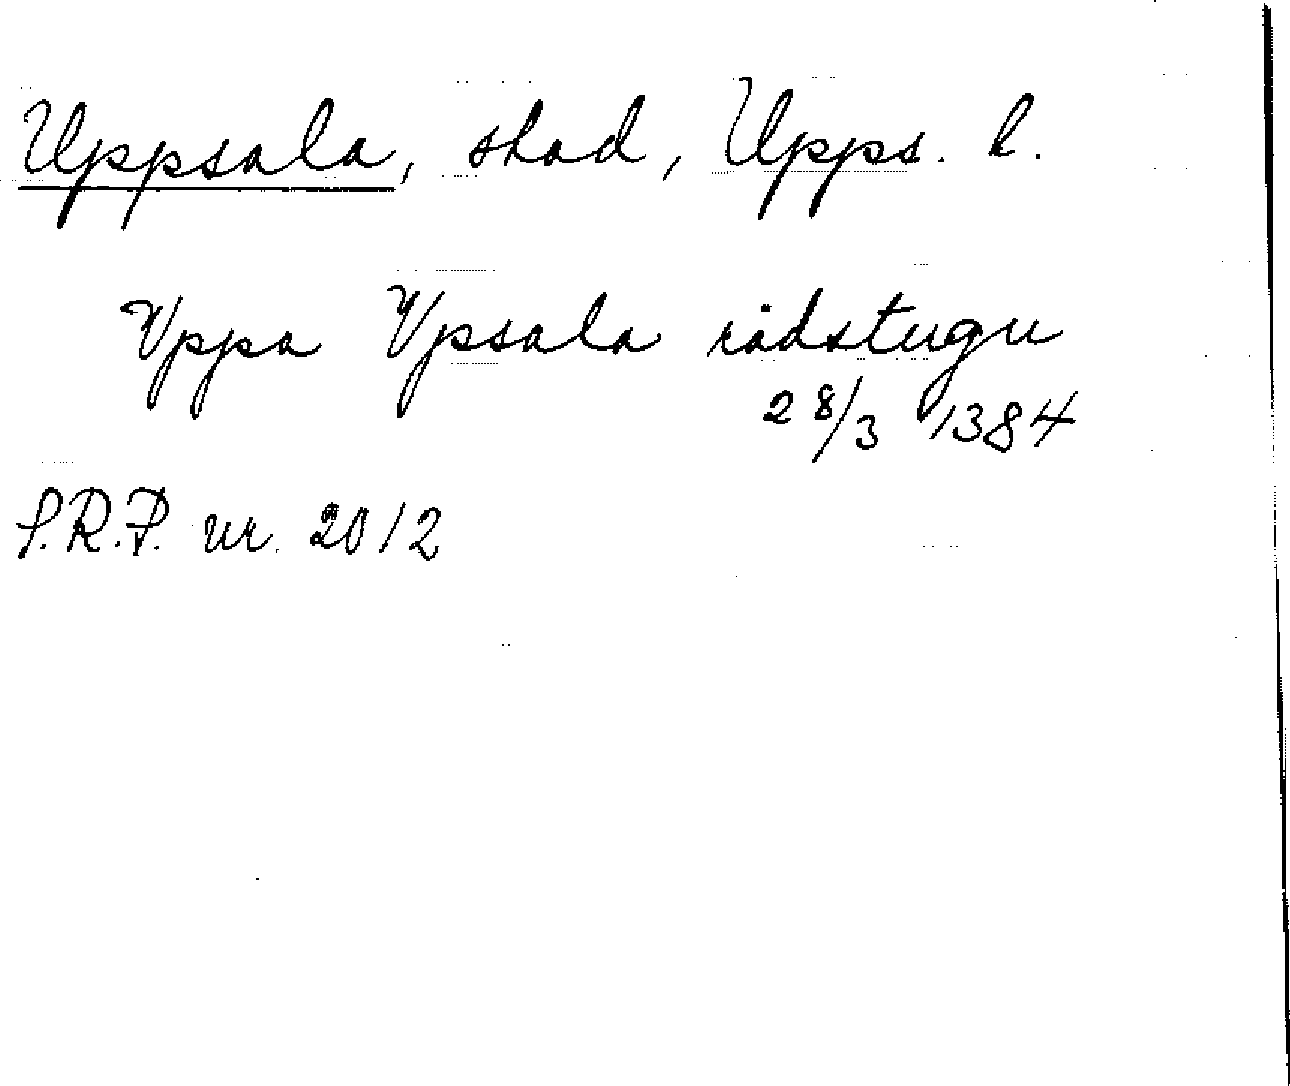 Uppsala, stad, Upps. l.
Vppa Vpsala rådstugu
28/3 1384
S.R.P. nr. 2012